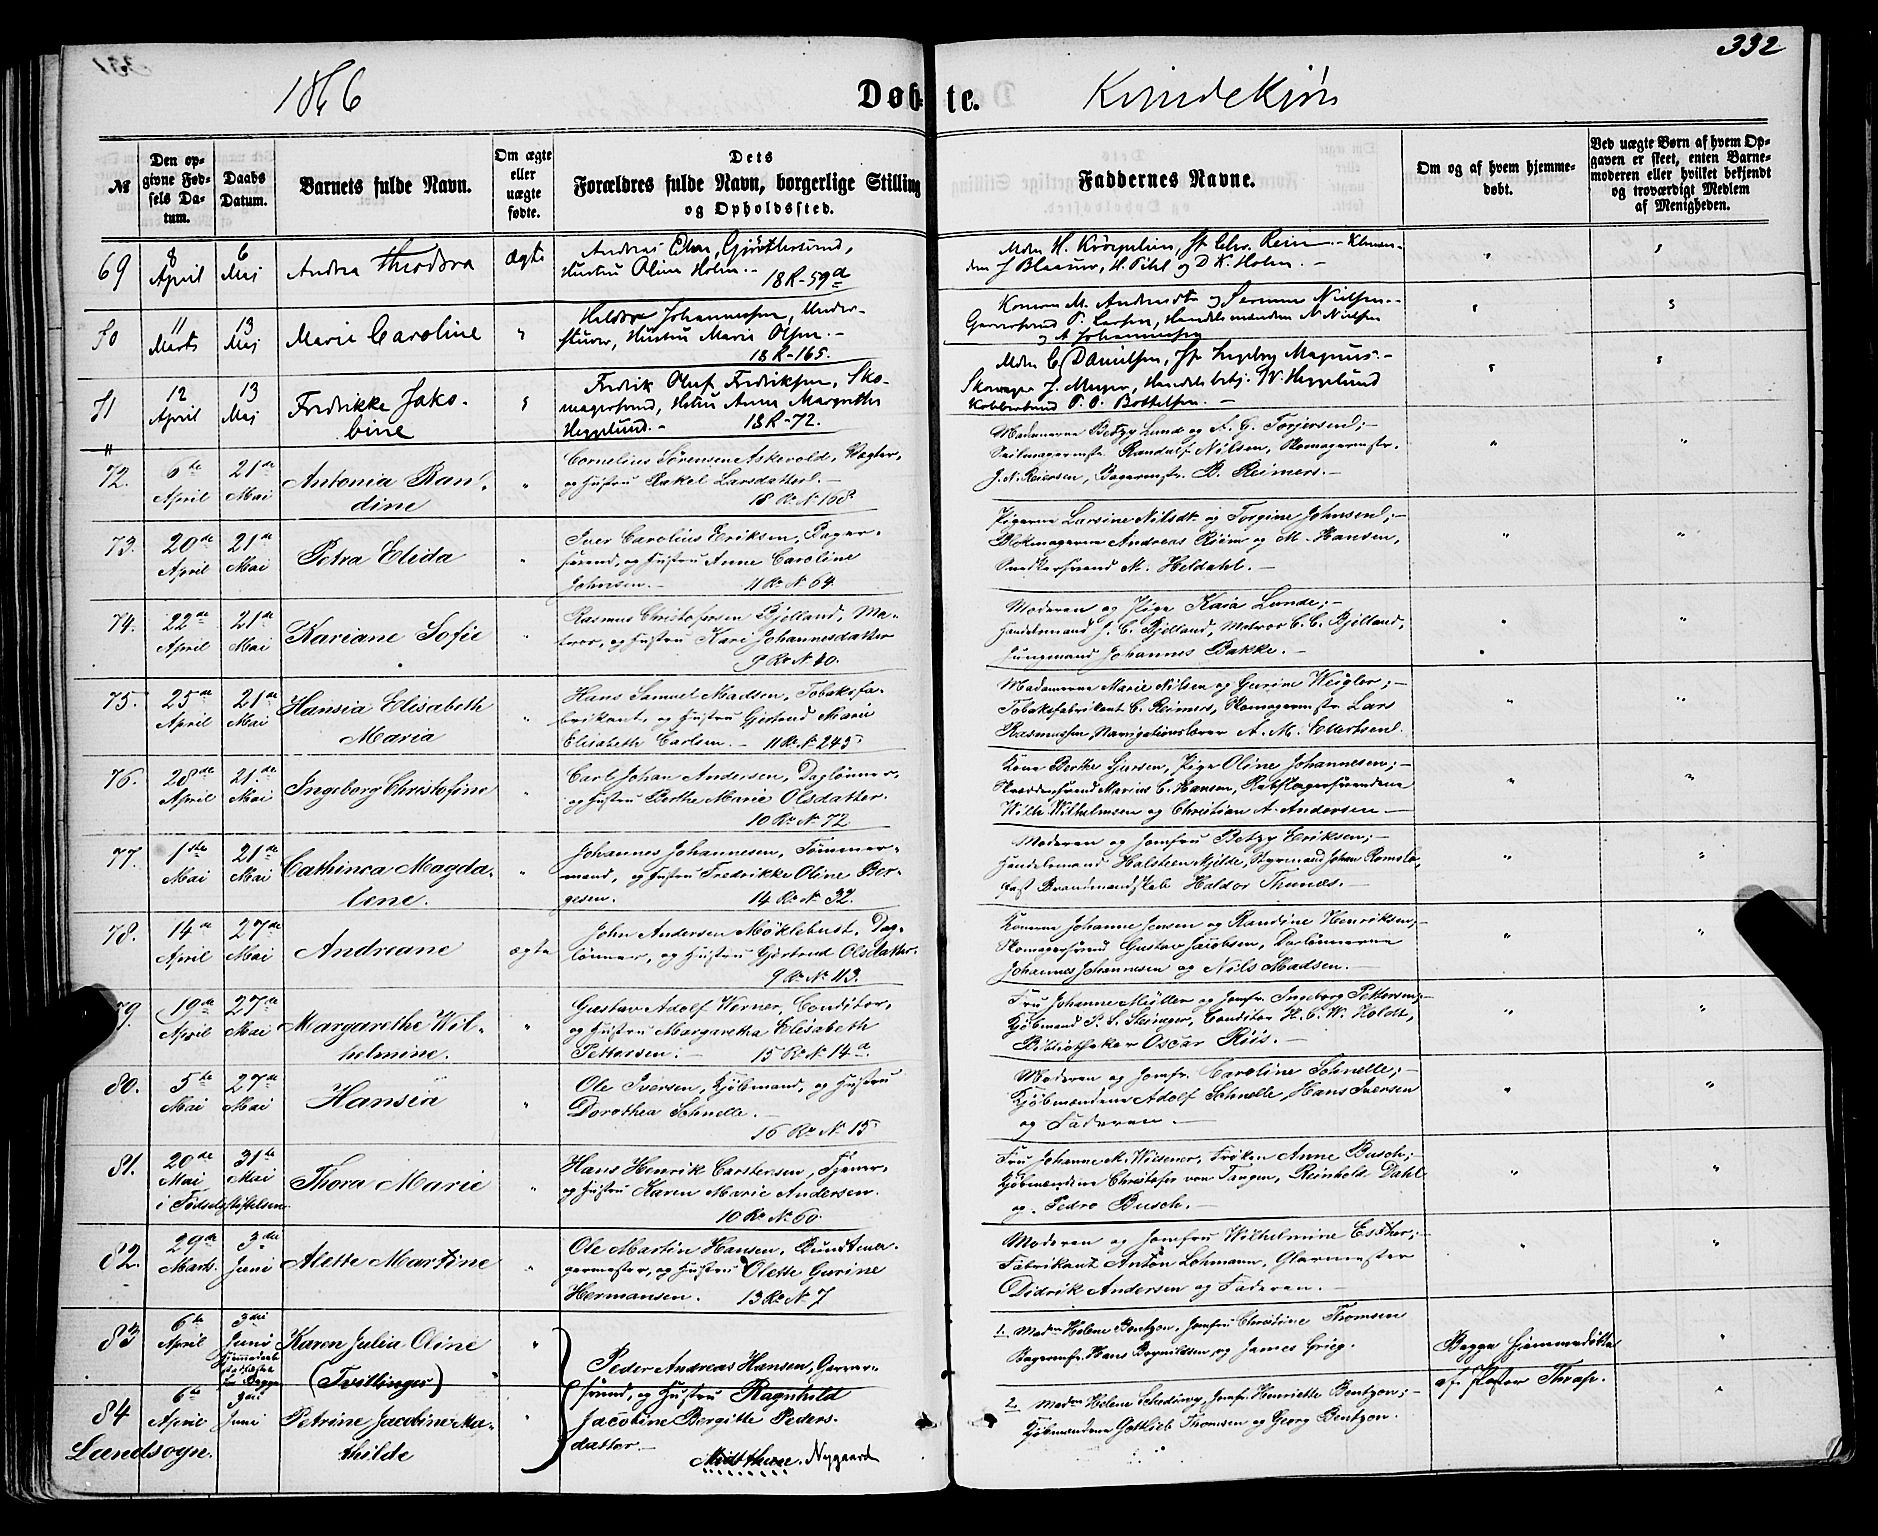 332
1866
Døbte.
Kvindekjøn
№
Den opgivne Fødsels Datum.
Daabs Datum.
Barnets fulde Navn.
Om ægte eller uægte fødte.
Dets Forældres fulde Navn, borgerlige Stilling og Opholdssted.
Faddernes Navne.
Om og af hvem hjemmedøbt.
Ved uægte Børn af hvem Opgaven er skeet, enten Barnemoderen eller hvilket bekjendt og troværdigt Medlem af Menigheden.
69
8 April
6 Maj
Andrea Theodora
Ægte
Hustru Oline Holm.-
18 R-59a
70
11 Marts
13 Maj
Marie Caroline
Johannessen, Under-
Hustru Marie Olsen.-
18 R-165.
71
12 April
13 Maj
Fredrikke Jako-
bine
Fredrik Oluf Fredriksen, Sko-
magersvend, Hstru Anna Margrethe
Hegglund.-
18 R-72.
Mdm C. Danielsen, Jf Ingeborg Magnus.-
Skomager J. Meyer, Handelsbetj. W. Hegglund
72.
6te April
21de Mai
Antonia Ran-
dine
Cornelius Sørensen Askevold, Vægter,
og Hustru Rakel Larsdatter.-
18 Ro N. 108
Madamerne Betzy Lund og A. G. Torjersen;-
Seilmagermstr. Randulf Nilsen, Skomagermstr.
J. N. Reiersen, Bagermstr. B. Reimers.-
73.
20de April
21de Mai
Petra Elida
Iver Carolius Eriksen, Bager-
svend, og Hustru Anne Caroline
Johnsen.-
11 Ro N. 64.
Pigerne Larsine Nilsdr. og Torgine Johnsen;-
Blokmagerne Andreas Riim og M. Hansen,
Snedkersvend M. Heldahl.-
74.
22de April
21de Mai
Kariane Sofie
Rasmus Christofersen Bjelland, Ma-
tros, og Hustru Kari Johannesdatter
Moderen og Pige Kaia Lunde;-
Handelsmand J. C. Bjelland, Matros C. C. Bjelland,
Ungmand Johannes Bakke.-
75.
25de April
21de Mai
Hansia Elisabeth
Maria
Hans Samuel Madsen, Tobaksfa-
brikant, og Hustru Gjertrud Marie
Elisabeth Carlsen.- 11 Ro N. 245
Madamerne Marie Nilsen og Gurine Weigler;-
Tobaksfabrikant C. Reimers, Skomagermstr. Lars
Rasmussen, Navigationslærer A. M. Evertsen.
76.
28de April
21de Mai
Ingeborg Christofine
Carl Johan Andersen, Daglønner,
og Hustru Berthe Marie Olsdatter.
10 Ro N. 72
Kone Berthe Sjursen, Pige Oline Johannesen;-
Skræddersvend Marius C. Hansen, Rebslagersvendene
Wilh. Wilhelmsen og Christian A. Andersen-
77.
1ste Mai
21de Mai
Cathinca Magda-
lene.
Johannes Johannesen, Tømmer-
mand, og Hustru Fredrikke Oline Ber-
gesen.
14 Ro N. 32.
Moderen og Jomfru Betzy Eriksen;-
Handelsmand Halsteen Mjelde, Styrmand Johan Romslo,
fast Brandmandskab Haldor Thunæs.-
78.
14de April
27de Mai
Andriane
ægte
John Andersen Møklebust, Dag-
lønner, og Hustru Gjertrud Olsdatter.
9 Ro N. 113.
Konerne Johanne Jensen og Randine Henriksen;-
Skomagersvend Gustav Jacobsen, Daglønnerne
Johannes Johannesen og Nils Madsen.-
79.
19de April
27de Mai
Margarethe Wil-
helmine.
Gustav Adolf Werner, Conditor,
og Hustru Margaretha Elisabeth
Pettersen.-
15 Ro N. 14a
Fru Johanne Møller og Jomfr. Ingeborg Pettersen;-
Kjøbmand P. S. Steinæger, Conditor H. C. W. Holdt,
Bibliothekar Oscar Riis.-
80.
5te Mai
27de Mai
Hansia
Ole Iversen, Kjøbmand, og Hustru
Dorothea Schnelle.-
16 Ro N. 15
Moderen og Jomfr. Caroline Schnelle;-
Kjøbmændene Adolf Schnelle, Hans Iversen
og Faderen.-
81.
20de Mai
31te Mai
i Fødselsstiftelsen
Thora Marie
Hans Henrik Carstensen, Tjener-
og Hustru Karen Marie Andersen.
10 Ro N. 60.
Fru Johanne M. Wiesener, Frøken Anne Busch;-
Kjøbmændene Christofer von Tangen, Reinholt Dahl
og Pedro Busch.-
82.
29de Marts
3die Juni
Alette Martine
Ole Martin Hansen, Bundtma-
germester, og Hustru Olette Gurine
Hermansen. 13 Ro N. 7
Moderen og Jomfru Wilhelmine Esther;-
Fabrikant Anton Lohmann, Glarmester
Didrik Andersen og Faderen.-
83
6te April
3die Juni
Karen Julia Oline
(Tvillinger)
Peder Andreas Hansen, Garver-
svend, og Hustru Ragnhild
Jacobine Bergitte Peders-
datter.-
1. Madm Helene Bentzon, Jomfru Christine Thomsen
Bagermstr. Hans Bognildsen, og James Grieg.
Begge hjemmedøbte
af Pastor Thrap.
84
6te April
3die Juni
Petrine Jacobine Ma-
thilde
2. Madm Helene Scheding, Jomfr. Henriette Bentzon;-
Kjøbmændene Gottlieb Thomsen og Georg Bentzon.
Landsogn.
Midtthune. Nygaard